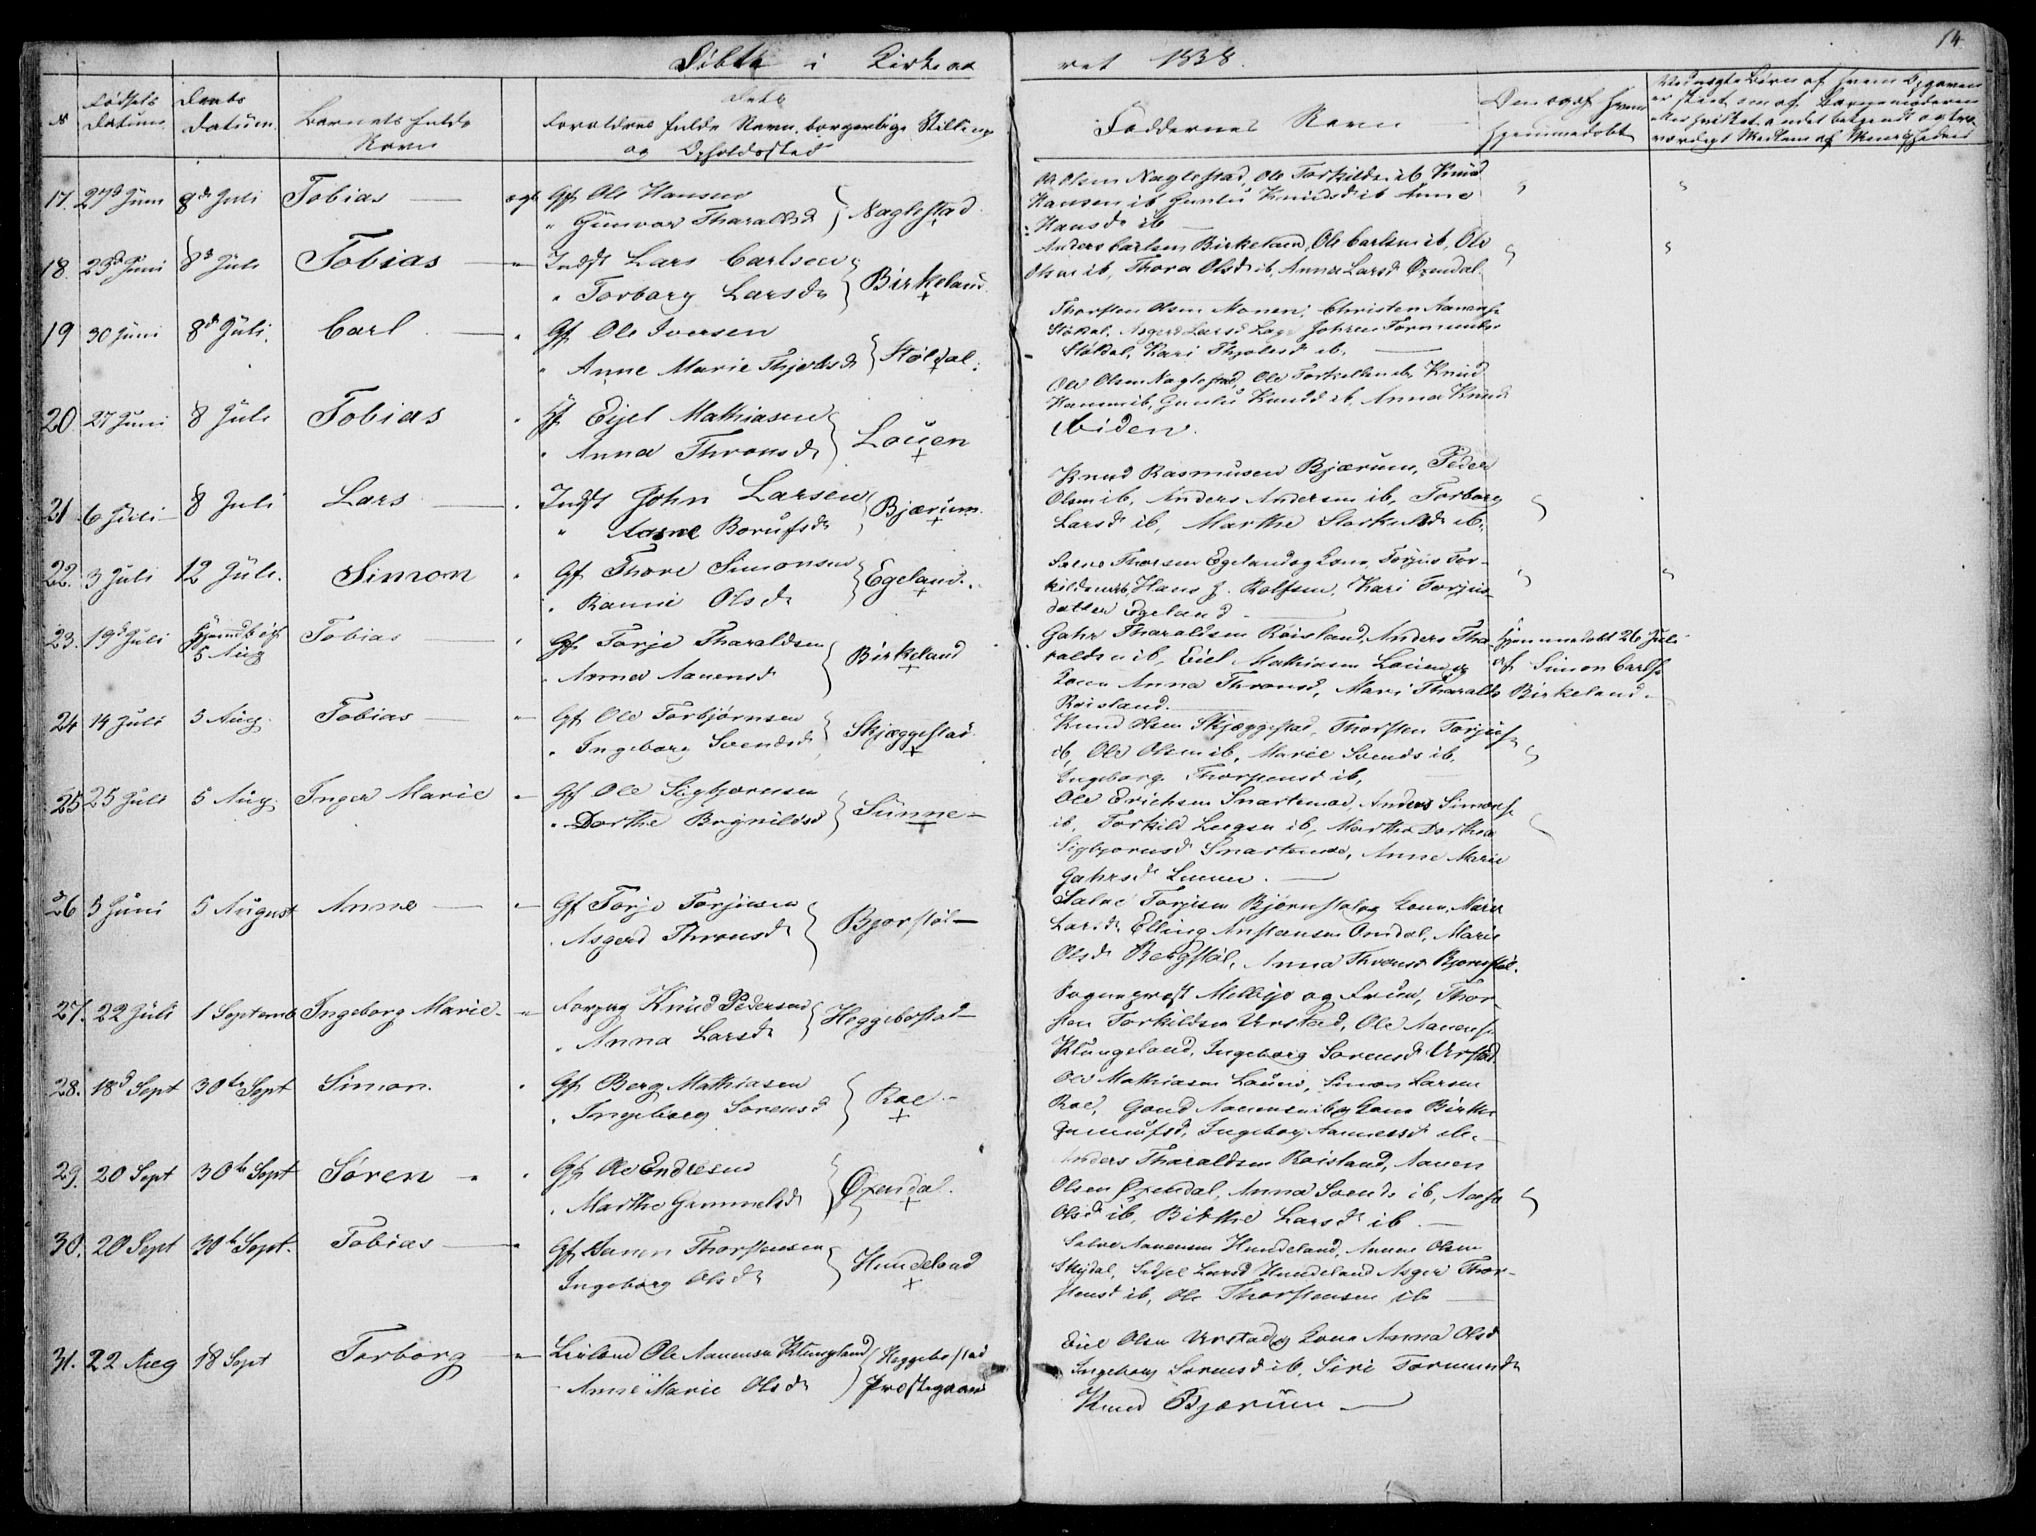 Døbte i Kirkeaa
ret 1838.
14
N
Fødsels Datum
Daabs Datum
Barnets fulde Navn
Forældres fulde Navn, borgerlige Stilling
og Opholdssted
Faddernes Navn
Om og af hvem hjemmedøbt
17. 27d Juni 8d Juli Tobias ægte Gf Ole Hansen
" Gunvor Tharaldsd Naglestad
Ole Olsen Naglestad, Ole Torkilds ib Knud
Hansen ib Gunlu Knudsd ib Anne
Hansd ib
18. 23d Juni 8d Juli Tobias " Indst Lars Carlsen
" Torborg Larsd Birkeland
Anders Carlsen Birkeland, Ole Carlsen ib, Ole
Olsen ib, Thora Olsd ib, Anna Larsd Øxendal
19 30 Juni 8d Juli Carl " Gf Ole Iversen
" Anne Marie Støldal
Thorsten Olsen Monen, Christen
Støldal, Asgerd Larsd
Støldal, Kari ib.
20 27 Juni 8 Juli Tobias " Gf Eiel Mathiasen
" Anna Thronsd Louen
Ole Olsen Naglestad, Ole Torkildsen ib, Knud
Hansen ib, Gunlu Knudsd ib, Anna
ibiden.
21 6 Juli 8 Juli Lars " Indst John Larsen
" Aasne Borufsd Bjærum
Knud Rasmusen Bjærum, Peder
Olsen ib, Anders Andersen ib, Torborg
Larsd ib, Marthe ib.
22. 3 Juli 12 Juli. Simon " Gf Thore Simonsen
" Ranni Olsd Egeland
Salve Thorsen Egeland og Kone, Torjus Tor-
kildsen ib, Hans J. Rolfsen, Kari Torjus-
datter Egeland
23. 19d Juli 5 Aug Tobias " Gf Torje Tharaldsen
" Anna Aanensd Birkeland
Gahr Tharaldsen Røisland, Anders Tha-
raldsen ib, Eiel Mathiasen Louen og
Kone Anna Thronsd, Mari Tharalds
Røisland.
Hjemmedøbt 26 Juli
af Simon Carls
Birkeland.
24 14 Juli 5 Aug. Tobias " Gf Ole Torbjørnsen
" Ingeborg Svendsd Skjæggestad
Knud Olsen Skjæggestad, Thorsten Torjus
ib, Ole Olsen ib, Marie Svends ib,
Ingeborg Thorstensd ib,
25 25 Juli 5 Aug. Inger Marie " Gf Ole Sigbjørnsen
" Dorthe Brynildsd Sünne
Ole Erichsen Snartemoe, Anders Simons
ib, Torkild ib, Martha Dorthea
Sigbjørnsd Snartemoe, Anne Marie
Gahrsd
26 5 Juni 5 August Anne " Gf Torje Torjusen
" Asgerd Thronsd Bjorstøl
Salve Torjusen Bjørnstøl og Kone, Marie
Larsd, Elling Omdal, Marie
Olsd Bergstøl, Anna Thronsd Bjornstøl.
27. 22 Juli 1 Septemb Ingeborg Marie " Forpag Knud Pedersen
" Anna Larsd Heggebostad
Sogneprost Melbye og Frue, Thor-
sten Torkildsen Verstad, Ole Aanens
Klungeland, Ingeborg Sorensd Verstad
28. 18d Sept 30te Sept Simon. " Gf Berg Mathiasen
" Ingeborg Sorensd Roe
Ole Mathiasen Louen, Simon Larsen
Roe, Aanensen ib og Kone Birthe
Ingeborg ib
29. 20 Sept 30te Sept Søren " Gf Ole Endresen
" Marthe Gunnelsd Øxendal.
Anders Tharaldsen Røisland, Aanen
Olsen Øxendal, Anna Svends ib, Aase
Olsd ib, Birthe Larsd ib.
30. 20 Sept 30te Sept. Tobias " Gf Aanen Thorstensen
Ingeborg Olsd Hundeland
Salve Aanensen Hundeland, Aanen Olsen
Skejdal, Sidsel Larsd Hundeland Asger Thor-
stensd ib, Ole Thorstensen ib
31. 22 Aug 18 Sept Torborg " Ole Aanensen Klungland
Anne Marie Olsd Heggebostad Præstegaard
Eiel Olsen Verstad og Kone Anna Olsd
Ingeborg Sorensd ib, Siri Tormunsd
Knud Bjærum